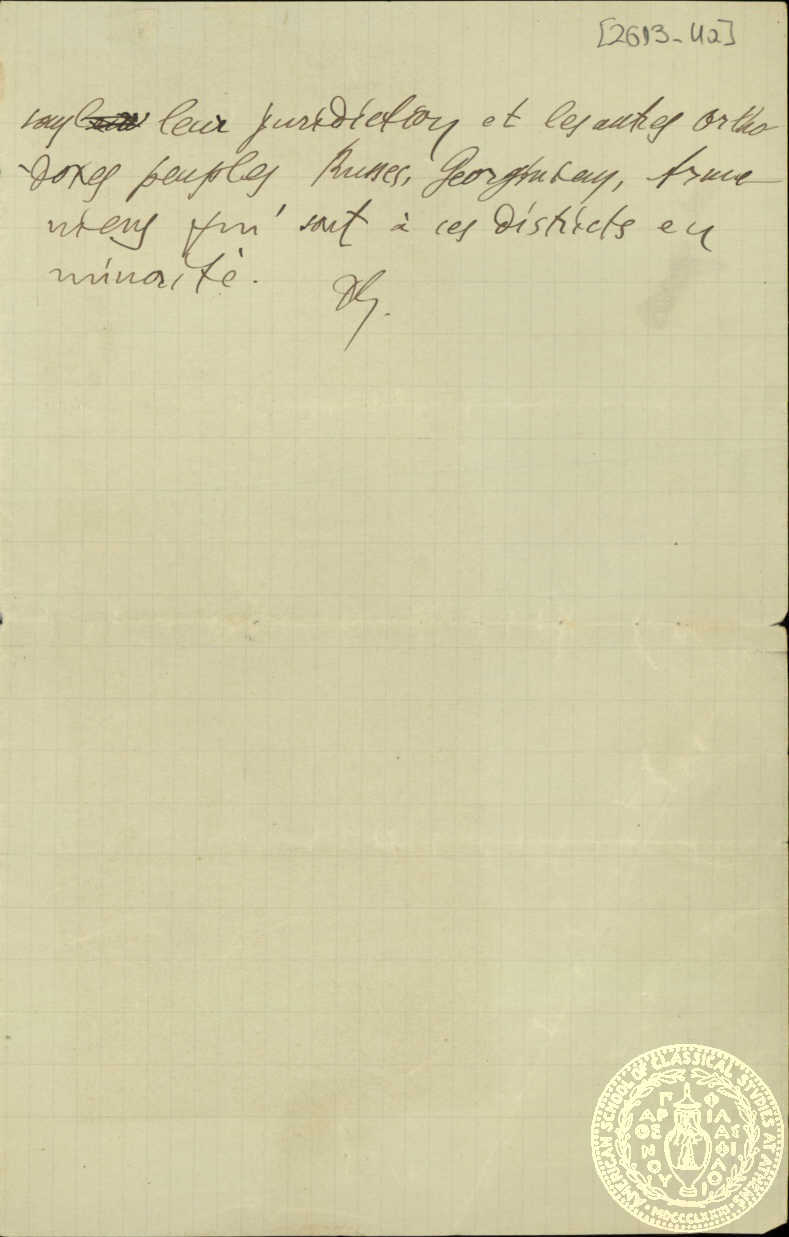 [2613-42]
sous leur juridiction et les autres ortho
doxes peuples Russes, Georgiens, Arme
niens qui sont à ces districts en
minorité.
AMERICAN SCHOOL OF CLASSICAL STUDIES AT ATHENS
ΠΑΡΘΕΝΟΥ ΦΙΛΑΣ ΦΙΛΟΙΟ
MDCCCLXXXI